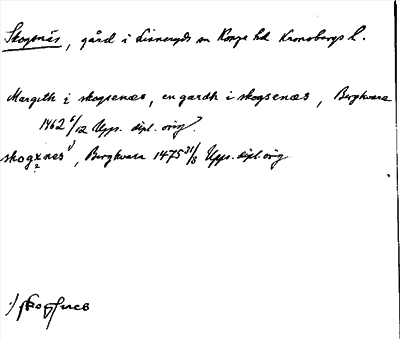 Skogsnäs, gård i Linneryds sn Konga hd Kronobergs l.
Margith i skogsenæs, en gardh i skogsenæs, Bergkvara
1462 6/12 Upps. dipl. orig.
skogxnes 1), Bergkvara 1475 31/3 Upps. dipl. orig
1) skog